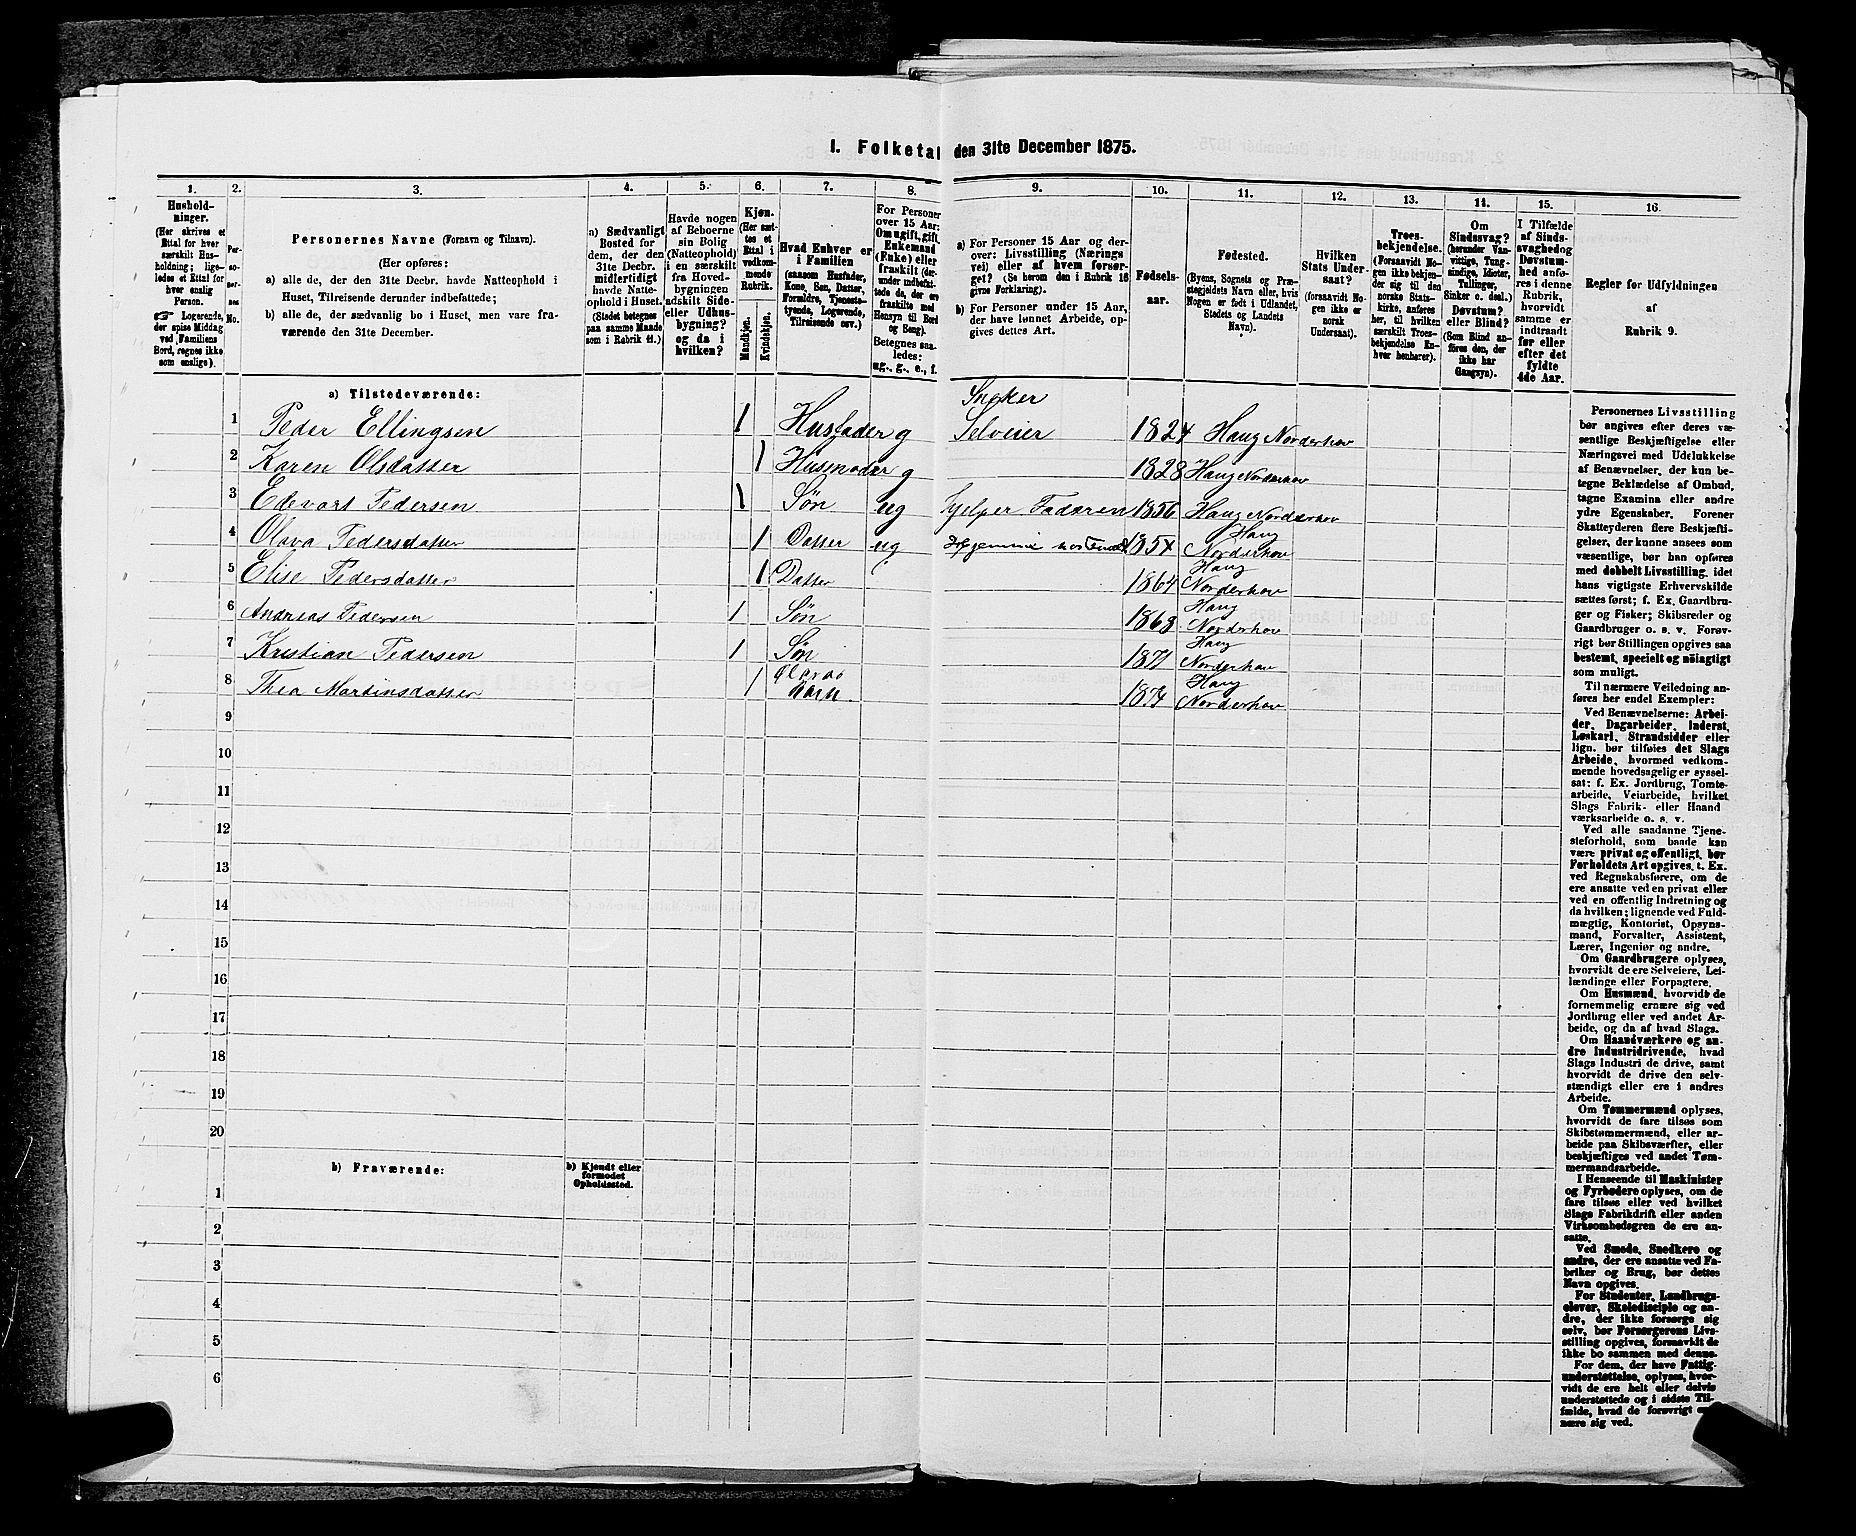 1. Folketal den 31te December 1875.
1.
2.
3.
4.
5.
6.
7.
8.
9.
10.
11.
12.
13.
14.
15.
16.
Hushold-
ninger.
(Her skrives et
Ettal for hver
særskilt Hus-
holdning; lige-
ledes et Ettal for
hver enslig
Person.
☞ Logerende,
der spise Middag
ved Familiens
Bord, regnes ikke
som enslige).
Per-
so-
ner-
nes
No.
Personernes Navne (Fornavn og Tilnavn).
(Her opføres:
a) alle de, der den 31te Decbr. havde Natteophold i
Huset, Tilreisende derunder indbefattede;
b) alle de, der sædvanlig bo i Huset, men vare fra-
værende den 31te December.
n) Sædvanligt
Bosted for
dem, der den
31te Decbr.
midlertidigt
havde Natte-
ophold i Huset.
(Stedet betegnes
paa samme Maade
som i Rubrik 11.)
Havde nogen
af Beboerne
sin Bolig
(Natteophold)
i en særskilt
fra Hoved-
bygningen
adskilt Side-
eller Udhus-
bygning?
og da i
hvilken?
Kjøn.
(Her sæt-
tes et
Ettal i
vedkom-
mende
Rubrik.
Mandkjøn.
Kvindekjøn.
Hvad Enhver er
i Familien
(saasom Husfader,
Kone, Søn, Datter,
Forældre, Tjeneste-
tyende, Logerende,
Tilreisende osv.)
For Personer
over 15 Aar:
Om ugift, gift,
Enkemand
(Enke) eller
fraskilt (der-
under indbefat-
tede da, der er
fraskilte med
Hensyn til Bord
og Seng).
Betegnes saa-
ledes:
ug., g., e., f.
a) For Personer 15 Aar og der-
over: Livsstilling (Nærings
vei) eller af hvem forsør-
get? (Se herom den i Rubrik 16
givne Forklaring).
b) For Personer under 15 Aar,
der have lønnet Arbeide, op-
gives dettes Art.
Fødsels-
aar.
Fødested.
(Byens, Sognets og Præ-
stegjeldets Navn eller, hvis
Nogen er født i Udlandet,
Stedets og Landets
Navn).
Hvilken
Stats Under-
saat?
(forsaavidt No-
gen ikke er
norsk
Undersaat).
Troes-
bekjendelse.
(Forsaavidt No-
gen ikke bekjen-
der sig til den
norske Stats-
kirke, anføres
her, til hvilken
særskilt Troes-
bekjendelse En-
hver henhører).
Om
Sindssvag?
(herunder Van-
vittige, Tung-
sindige, Idioter,
Tullinger,
Sinker o. desl.)
Døvstum?
eller Blind?
(Som Blind an-
føres den, der
ikke har
Gangsyn).
I Tilfælde
af Sinds-
svaghed og
Døvstum-
hed anfø-
res i denne
Rubrik,
hvorvidt
samme er
indtraadt
før eller
efter det
fyldte
4de Aar.
Regler for Udfyldningen
af
Rubrik 9.
a) Tilstedeværende:
Sneker
1 Peder Ellingsen 1 Husfader g Selveier 1824 Haug Norderhov
2 Karen Olsdatter 1 Husmoder g 1828 Haug Norderhov
3 Edevart Pedersen 1 Søn ug hjelper Faderen 1856 Haug Norderhov
Haug
4 Olava Pedersdatter 1 Datter ug Hjemme 1854 Norderhov
Haug
5 Elise Pedersdatter 1 Datter 1864 Norderhov
Haug
6 Andreas Pedersen 1 Søn 1868 Norderhov
Haug
7 Kristian Pedersen 1 Søn 1871 Norderhov
Haug
8 Thea Martinsdatter 1 Barn 1874 Norderhov
9
10
11
12
13
14
15
16
17
18
19
20
b) Fraværende:
b) Kjendt eller
formodet
Opholdssted.
1
2
3
4
5
6
Personernes Livsstilling
bør angives efter deres væ-
sentlige Beskjæftigelse eller
Næringsvei med Udelukkelse
af Benævnelser, der kun be-
tegne Beklædelse af Ombud,
tagne Examina eller andre
ydre Egenskaber. Forener
Skatteyderen flere Beskjæfti-
gelser, der kunne ansees som
væsentlige, bør han opføres
med dobbelt Livsstilling, idet
hans vigtigste Erhvervskilde
sættes først; f. Ex. Gaardbru-
ger og Fisker; Skibsreder og
Gaardbruger o. s. v. Forøv-
rigt bør Stillingen opgives saa
bestemt, specielt og nöiagtigt
som muligt.
Til nærmere Veiledning an-
føres her endel Exempler:
Ved Benævnelserne: Arbei-
der, Dagarbeider, Inderst,
Løskarl, Strandsidder eller
lign. bør tilføies det Slags
Arbeide, hvormed vedkom-
mende hovedsagelig er syssel-
sat: f. Ex. Jordbrug, Tomte-
arbeide, Veiarbeide, hvilket
Slags Fabrik- eller Haand
værksarbeide o. s. v.
Ved alle saadanne Tjene-
steforhold, som baade kan
være privat og offentligt, bør
Forholdets Art opgives, t. Ex.
ved Regnskabsførere, om de
ere ansatte ved en privat eller
ved en offentlig Indretning og
da hvilken; lignende ved Fuld-
mægtig, Kontorist, Opsyns-
mand, Forvalter, Assistent,
Lærer, Ingeniør og andre.
Om Gaardbrugere oplyses,
hvorvidt de ere Selveiere, Lei-
lændinge eller Forpagtere.
Om Husmænd, hvorvidt de
fornemmelig ernære sig ved
Jordbrug eller ved andet Ar-
beide, og da af hvad Slags.
Om Haandværkere og an-
dre Industridrivende, hvad
Slags Industri de drive, samt
hvorvidt de drive den selv-
stændigt eller ere i andres
Arbeide.
Om Tømmermænd oplyses,
hvorvidt de fare tilsøs som
Skibstømmermænd, eller ar-
beide paa Skibsværfter, eller
beskjæftiges ved andet Tøm-
mermandsarbeide.
I Henseende til Maskinister
og Fyrbødere oplyses, om de
fare tilsøs eller ved hvilket
Slags Fabrikdrift eller anden
Virksomhedsgren de ere an-
satte.
Ved Smede, Snedkere og
andre, der ere ansatte ved Fa-
briker og Brug, bør dettes
Navn opgives.
For Studenter, Landbrugs-
elever, Skoledisciple og an-
dre, der ikke forsørge sig
selv, bør Forsørgerens Livs-
stilling opgives, forsaavidt de
ikke bo sammen med denne.
For dem, der have Fattig-
understøttelse, oplyses, hvor-
vidt de ere helt eller delvis
understøttede og i sidste Til-
fælde, hvad de forøvrigt er-
nære sig ved.